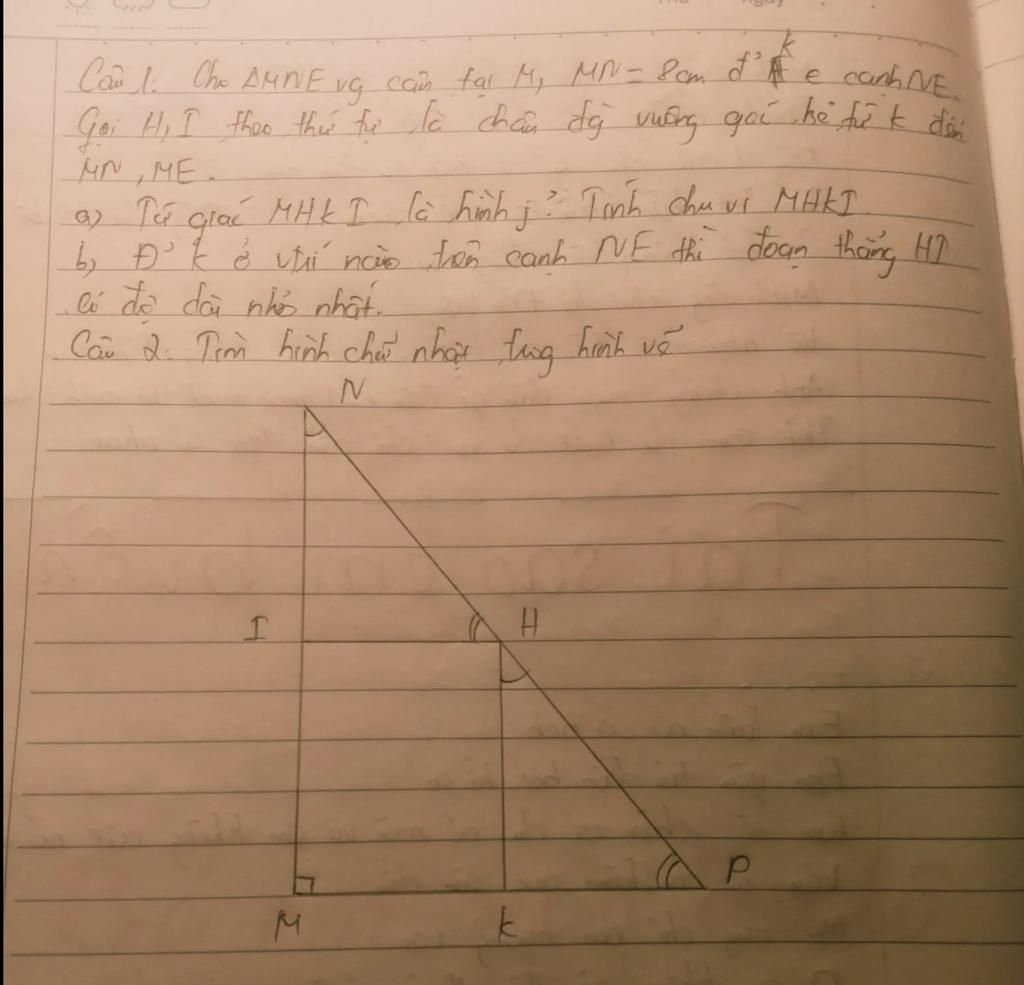 Câu 1. Cho ΔMNE vg cân tại M, MN = 8cm đ' k e canh NE.
Gọi H, I theo thứ tự là chân đg vuông góc kẻ từ k đến
MN, ME.
a) Tứ giác MHkI là hình j? Tính chu vi MHkI.
b) Đ' k ở vtrí nào trên canh NE thì đoạn thẳng HI
có độ dài nhỏ nhất.
Câu 2. Tìm hình chữ nhật trog hình vẽ
N
I H
P
M k